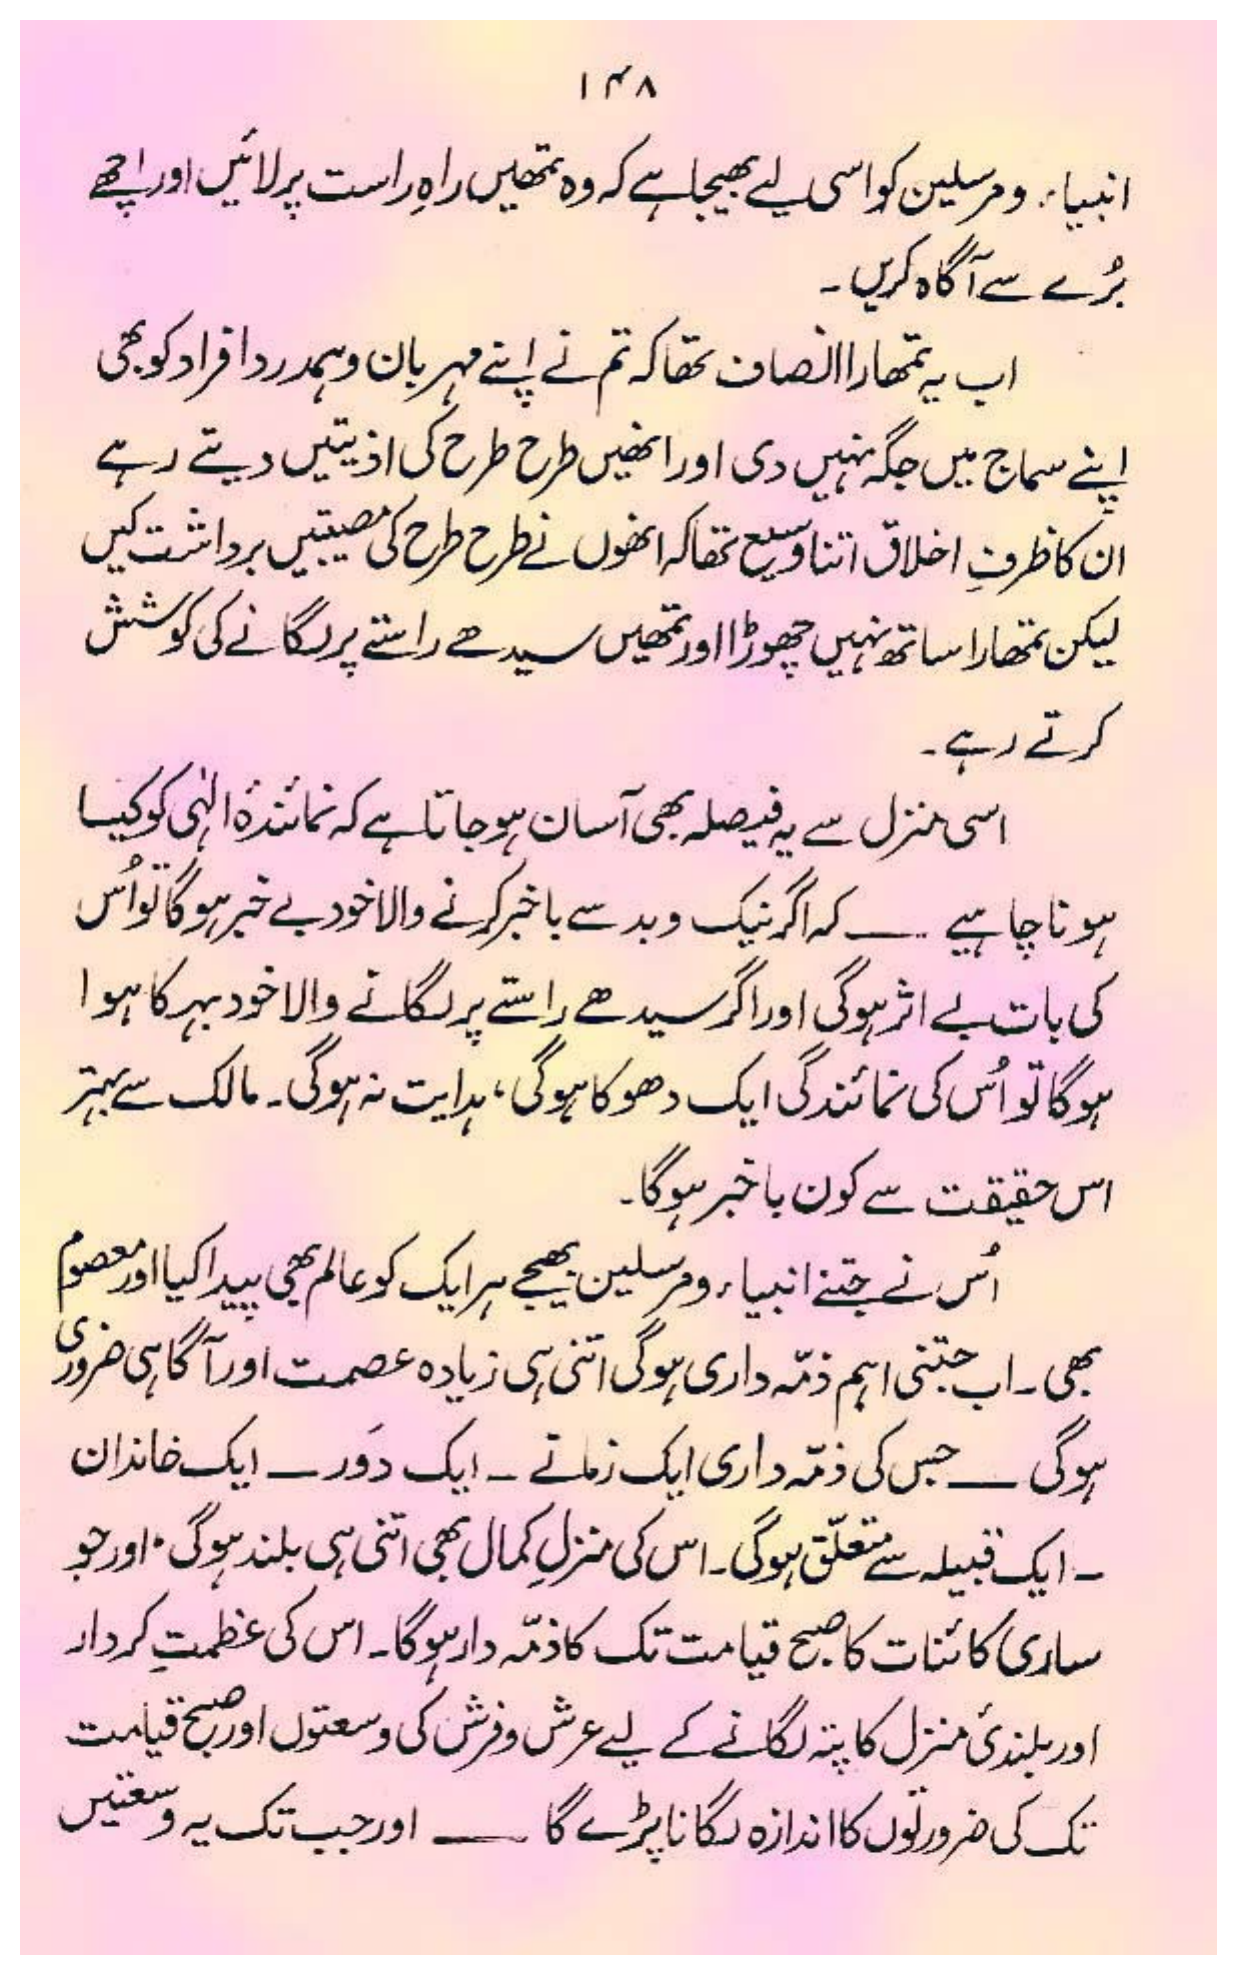 ۱۴۸
انبیاء و مرسلین کو اسی لیے بھیجا ہے کہ وہ تمھیں راہِ راست پر لائیں اور اچھے
بُرے سے آگاہ کریں ۔
اب یہ تمھارا انصاف تھا کہ تم نے اپنے مہربان و ہمدرد افراد کو بھی
اپنے سماج میں جگہ نہیں دی اور انھیں طرح طرح کی اذیتیں دیتے رہے
ان کا ظرفِ اخلاق اتنا وسیع تھا کہ انھوں نے طرح طرح کی مصیبتیں برداشت کیں
لیکن تمھارا ساتھ نہیں چھوڑا اور تمھیں سیدھے راستے پر لگانے کی کوشش
کرتے رہے ۔
اسی منزل سے یہ فیصلہ بھی آسان ہو جاتا ہے کہ نمائندۂ الٰہی کو کیسا
ہونا چاہیے ــــ کہ اگر نیک و بد سے باخبر کرنے والا خود بے خبر ہوگا تو اُس
کی بات بے اثر ہوگی اور اگر سیدھے راستے پر لگانے والا خود بہکا ہوا
ہوگا تو اُس کی نمائندگی ایک دھوکا ہوگی، ہدایت نہ ہوگی۔ مالک سے بہتر
اس حقیقت سے کون باخبر ہوگا۔
اُس نے جتنے انبیاء و مرسلین بھیجے ہر ایک کو عالم بھی پیدا کیا اور معصوم
بھی۔ اب جتنی اہم ذمّہ داری ہوگی اتنی ہی زیادہ عصمت اور آگاہی ضروری
ہوگی ــــ جس کی ذمّہ داری ایک زمانے ـ ایک دَور ــ ایک خاندان
ـ ایک قبیلہ سے متعلّق ہوگی۔ اس کی منزلِ کمال بھی اتنی ہی بلند ہوگی، اور جو
ساری کائنات کا صبح قیامت تک کا ذمّہ دار ہوگا۔ اس کی عظمتِ کردار
اور بلندئ منزل کا پتہ لگانے کے لیے عرش و فرش کی وسعتوں اور صبح قیامت
تک کی ضرورتوں کا اندازہ لگانا پڑے گا ــــ اور جب تک یہ وسعتیں